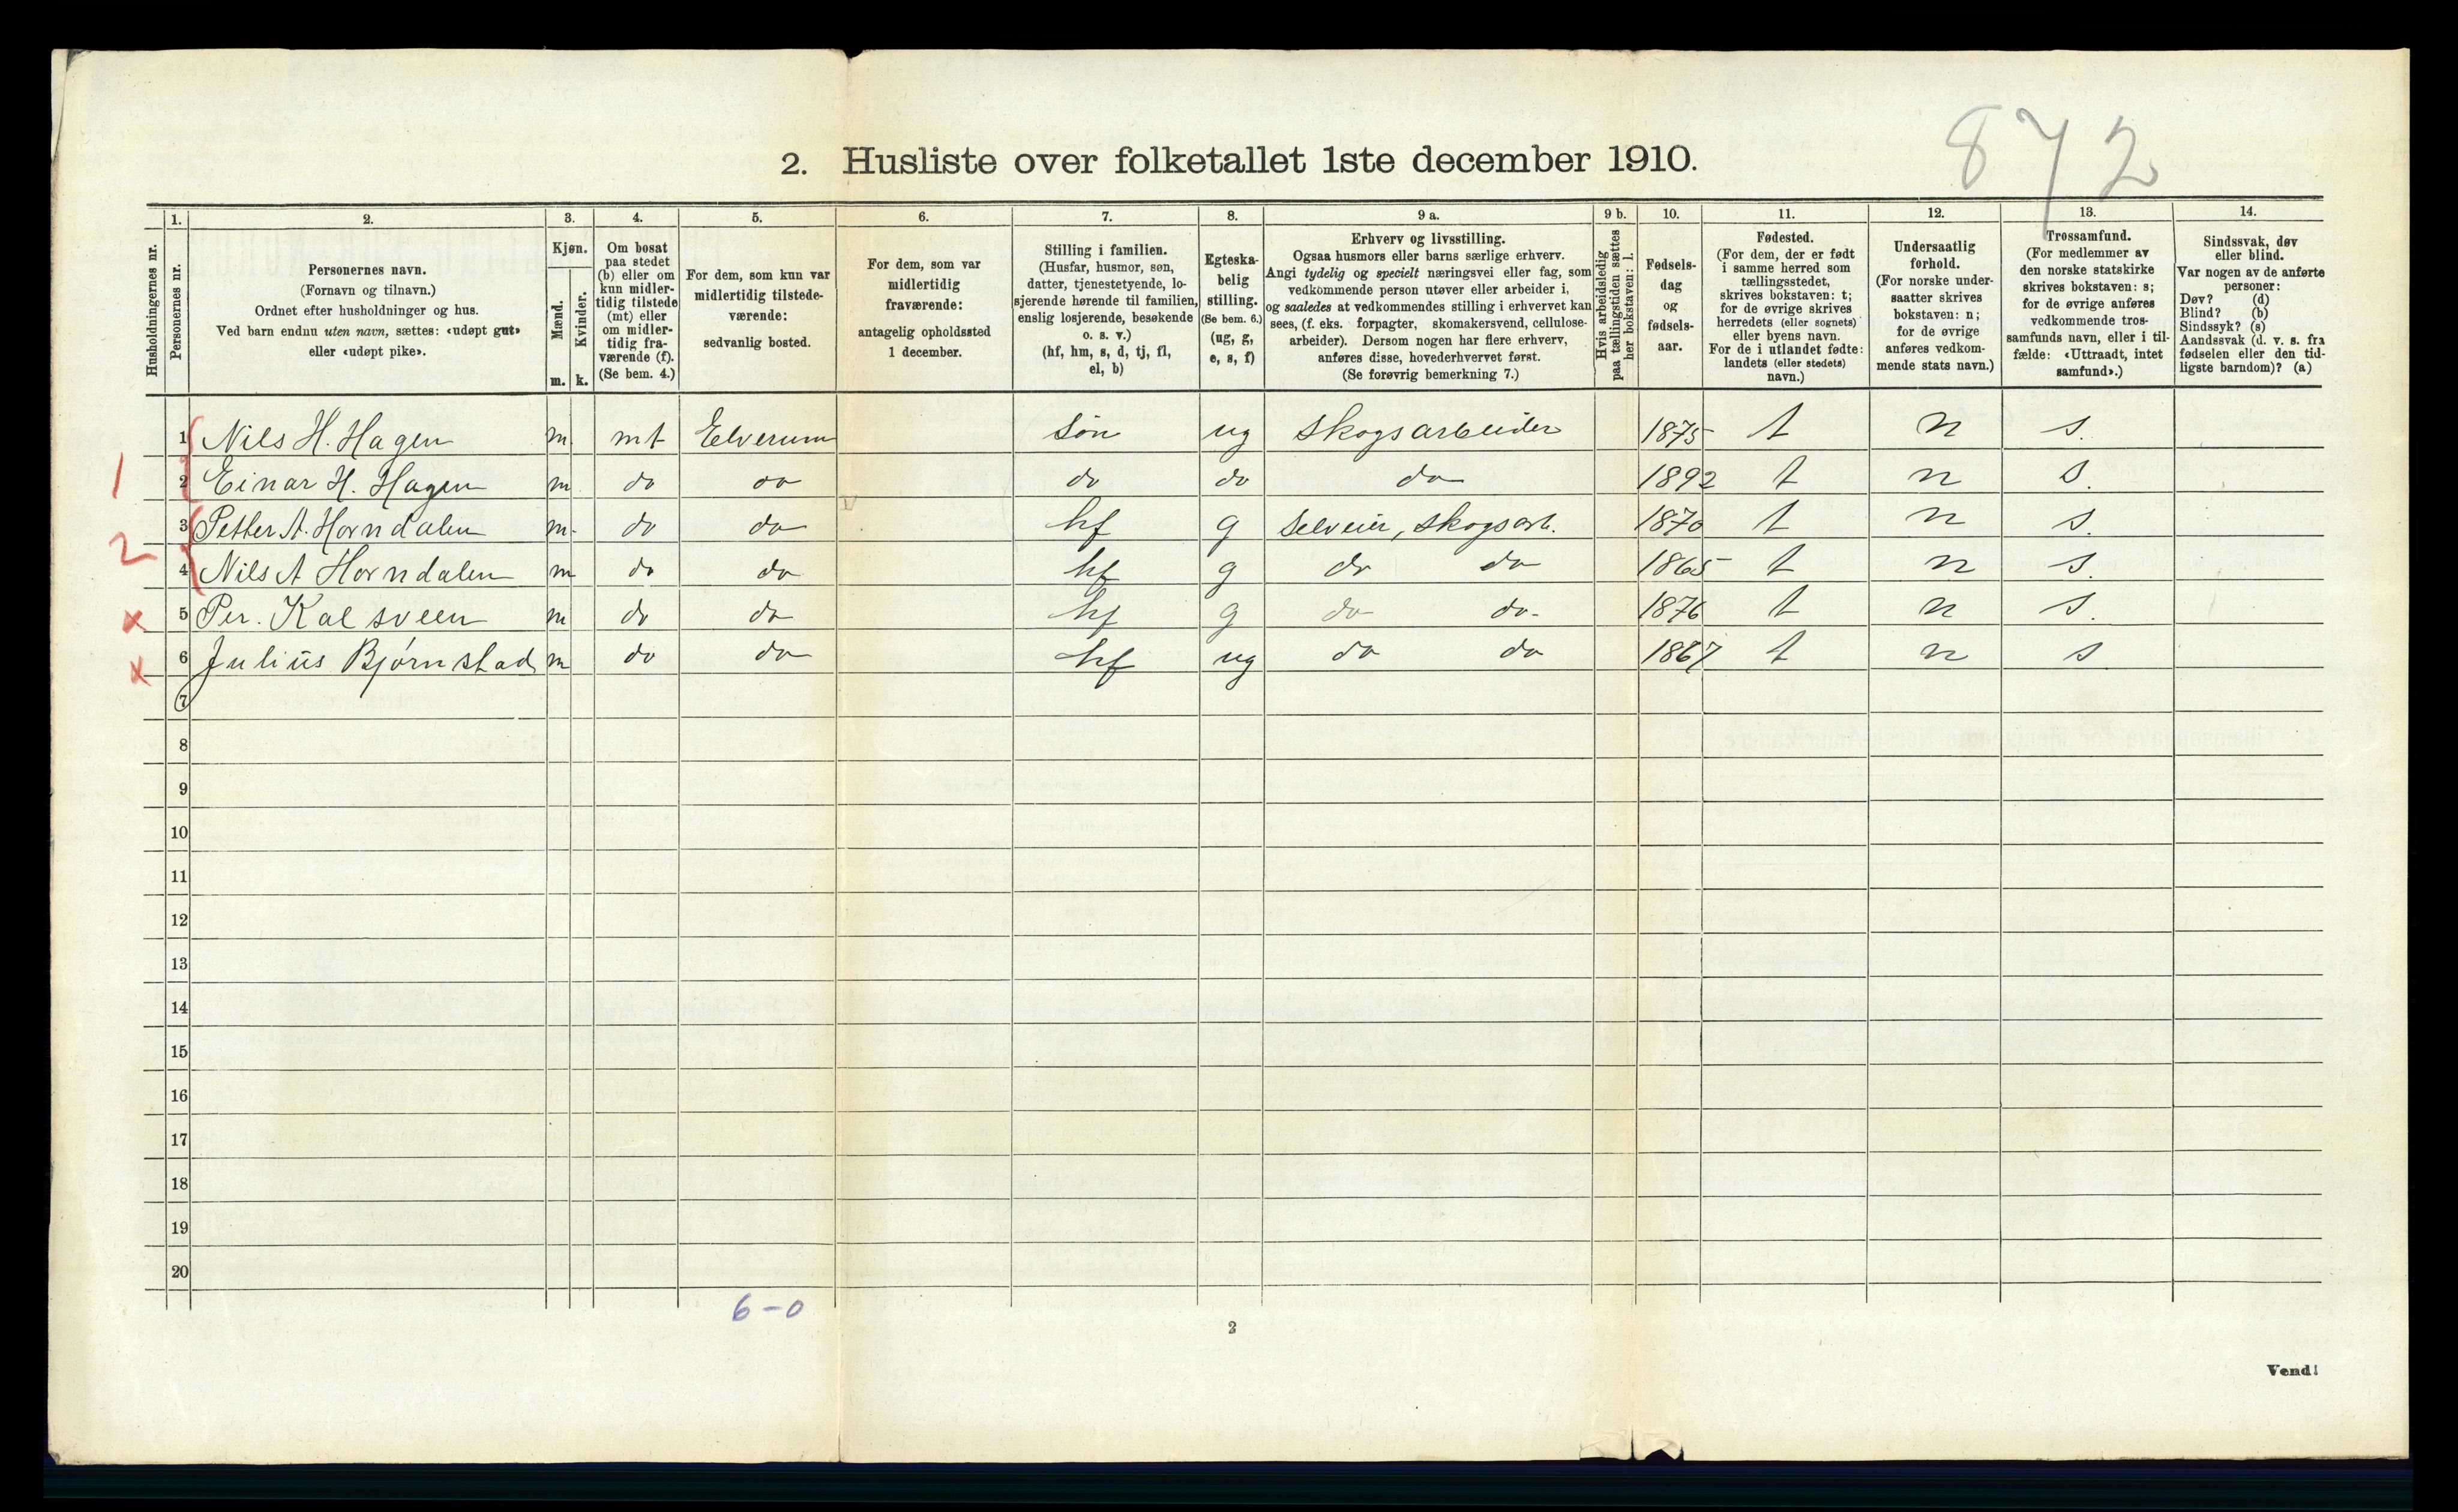 872
2. Husliste over folketallet 1ste december 1910.
Husholdningernes nr.
1.
Personernes nr.
2.
Personernes navn.
(Fornavn og tilnavn.)
Ordnet efter husholdninger og hus.
Ved barn endnu uten navn, sættes: «udøpt gut»
eller «udøpt pike».
3.
Kjøn.
Mænd.
Kvinder.
m. k.
4.
Om bosat
paa stedet
(b) eller om
kun midler-
tidig tilstede
(mt) eller
om midler-
tidig fra-
værende (f).
(Se bem. 4.)
5.
For dem, som kun var
midlertidig tilstede-
værende:
sedvanlig bosted.
6.
For dem, som var
midlertidig
fraværende:
antagelig opholdssted
1 december.
7.
Stilling i familien.
(Husfar, husmor, søn,
datter, tjenestetyende, lo-
sjerende hørende til familien,
enslig losjerende, besøkende
o. s. v.)
(hf, hm, s, d, tj, fl,
el, b)
8.
Egteska-
belig
stilling.
(Se bem. 6.)
(ug, g,
e, s, f)
9 a.
Erhverv og livsstilling.
Ogsaa husmors eller barns særlige erhverv.
Angi tydelig og specielt næringsvei eller fag, som
vedkommende person utøver eller arbeider i,
og saaledes at vedkommendes stilling i erhvervet kan
sees, (f. eks. forpagter, skomakersvend, cellulose-
arbeider). Dersom nogen har flere erhverv,
anføres disse, hovederhvervet først.
(Se forøvrig bemerkning 7.)
9 b.
Hvis arbeidsledig
paa tællingstiden sættes
her bokstaven: l.
10.
Fødsels-
dag
og
fødsels-
aar.
11.
Fødested.
(For dem, der er født
i samme herred som
tællingsstedet,
skrives bokstaven: t;
for de øvrige skrives
herredets (eller sognets)
eller byens navn.
For de i utlandet fødte:
landets (eller stedets)
navn.)
12.
Undersaatlig
forhold.
(For norske under-
saatter skrives
bokstaven: n;
for de øvrige
anføres vedkom-
mende stats navn.)
13.
Trossamfund.
(For medlemmer av
den norske statskirke
skrives bokstaven: s;
for de øvrige anføres
vedkommende tros-
samfunds navn, eller i til-
fælde: «Uttraadt, intet
samfund».)
14.
Sindssvak, døv
eller blind.
Var nogen av de anførte
personer:
Døv? (d)
Blind? (b)
Sindssyk? (s)
Aandssvak (d. v. s. fra
fødselen eller den tid-
ligste barndom)? (a)
1 Nils H. Hagen m. mt Elverum søn ug Skogsarbeider 1875 t n s.
1 2 Einar H. Hagen m do do do do do 1892 t n s.
3 Petter A. Horndalen m. do do hf g Selveier, Skogsarb. 1870 t n s.
2 4 Nils A Horndalen m do do hf g do do 1865 t n s.
x 5 Per. Kalsveen m do do hf g do do. 1876 t n s.
x 6 Julius Bjørnstad m do do hf ug do do 1867 t n s
7
8
9
10
11
12
13
14
15
16
17
18
19
20
6-0
2
Vend!